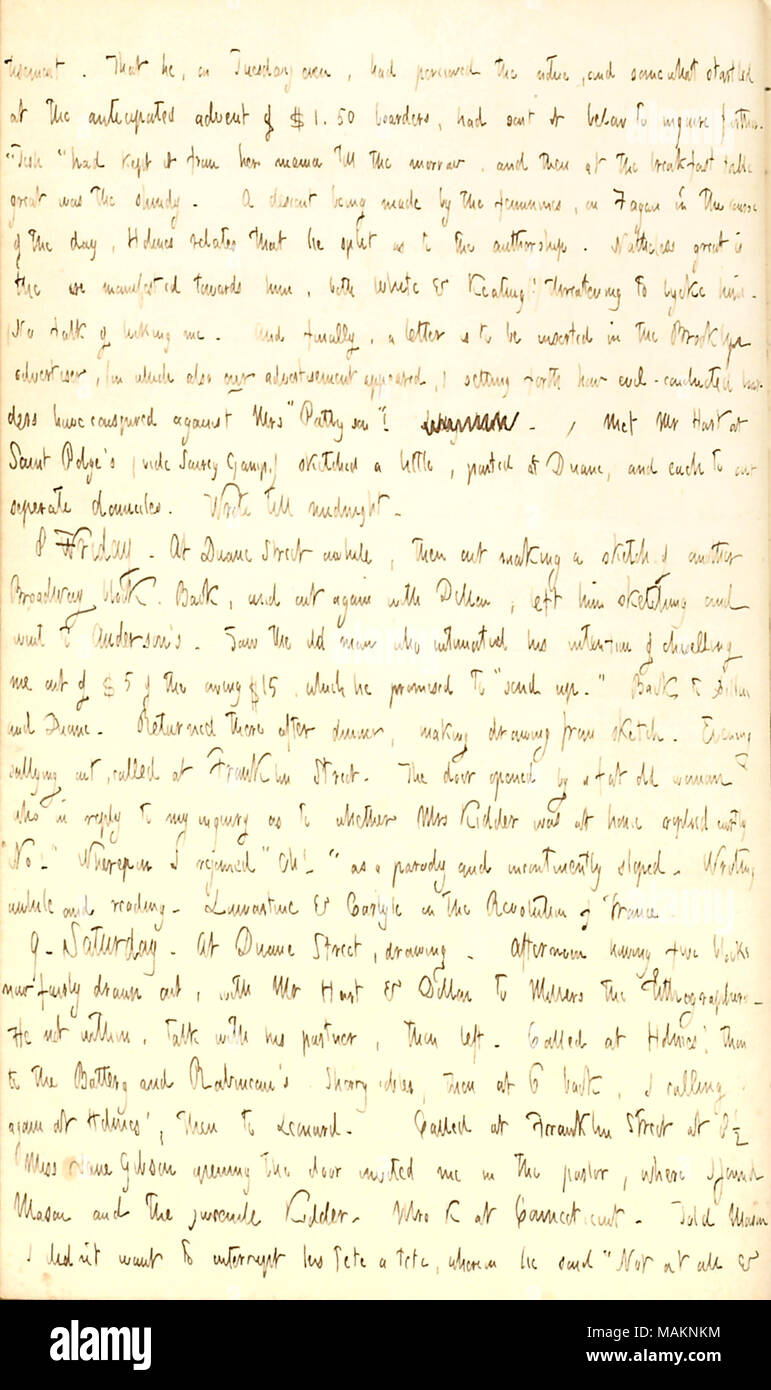 tisement. That he, on Tuesday even, had perceived the notice, and somewhat startled
at the anticipated advent of $1.50 boarders, had sent it below to inquire further.
"Tesh" had kept it from her mama till the morrow, and then at the breakfast table
great was the shindy. A descent being made by the feminines, on Fagan in the course
of the day, Holmes relates that he split as to the authorship. Natheless great is
the ire manifested towards him, both White & Keating! threatening to lycke him.
(No talk of licking me. And finally, a letter is to be inserted in the Brooklyn
advertiser, (in which also our advertisement appeared,) setting forth how evil-conducted boar
ders have conspired against Mrs "Pattyson"! Met Mr Hart at
Saint Polge's (vide Sairey Gamp.) sketched a little, parted at Duane, and each to our
seperate domiciles. Wrote till midnight.
8 Friday. At Duane Street awhile, then out making a sketch of another
Broadway block. Back, and out again with Dillon, left him sketching and
went to Anderson's. Saw the old man who intimated his intention of chiselling
me out of $5 of the owing $15, which he promised to "send up." Back to Dillon
and Duane. Returned there after dinner, making drawing from sketch. Evening
sallying out, called at Franklin Street. The door opened by a fat old woman
who in reply to my inquiry as to whether Mrs Kidder was at home replied curtly
"No!" Whereupon I rejoined "Oh!" as a parody and incontinently sloped. Writing
awhile and reading. Lamartine & Carlyle on the Revolution of France
9. Saturday. At Duane Street, drawing. Afternoon having five blocks
now fairly drawn out, with Mr Hart & Dillon to Millers the lithographers.
He not within, talk with his partner, then left. Called at Holmes', then
to the Battery and Rabineau's. Sherry coblers, then at 6 back, I calling
again at Holmes', then to Leonard. Called at Franklin Street at 8 1/2
Miss Jane Gibson opening the door invited me in the parlor, where I found
Mason and the juvenile Kidder. Mrs K at Connecticut. Told Mason
I didn't want to interrupt his tete a tete, wherein he said "Not at all &
alamy
Image ID: MAKNKM
www.alamy.com